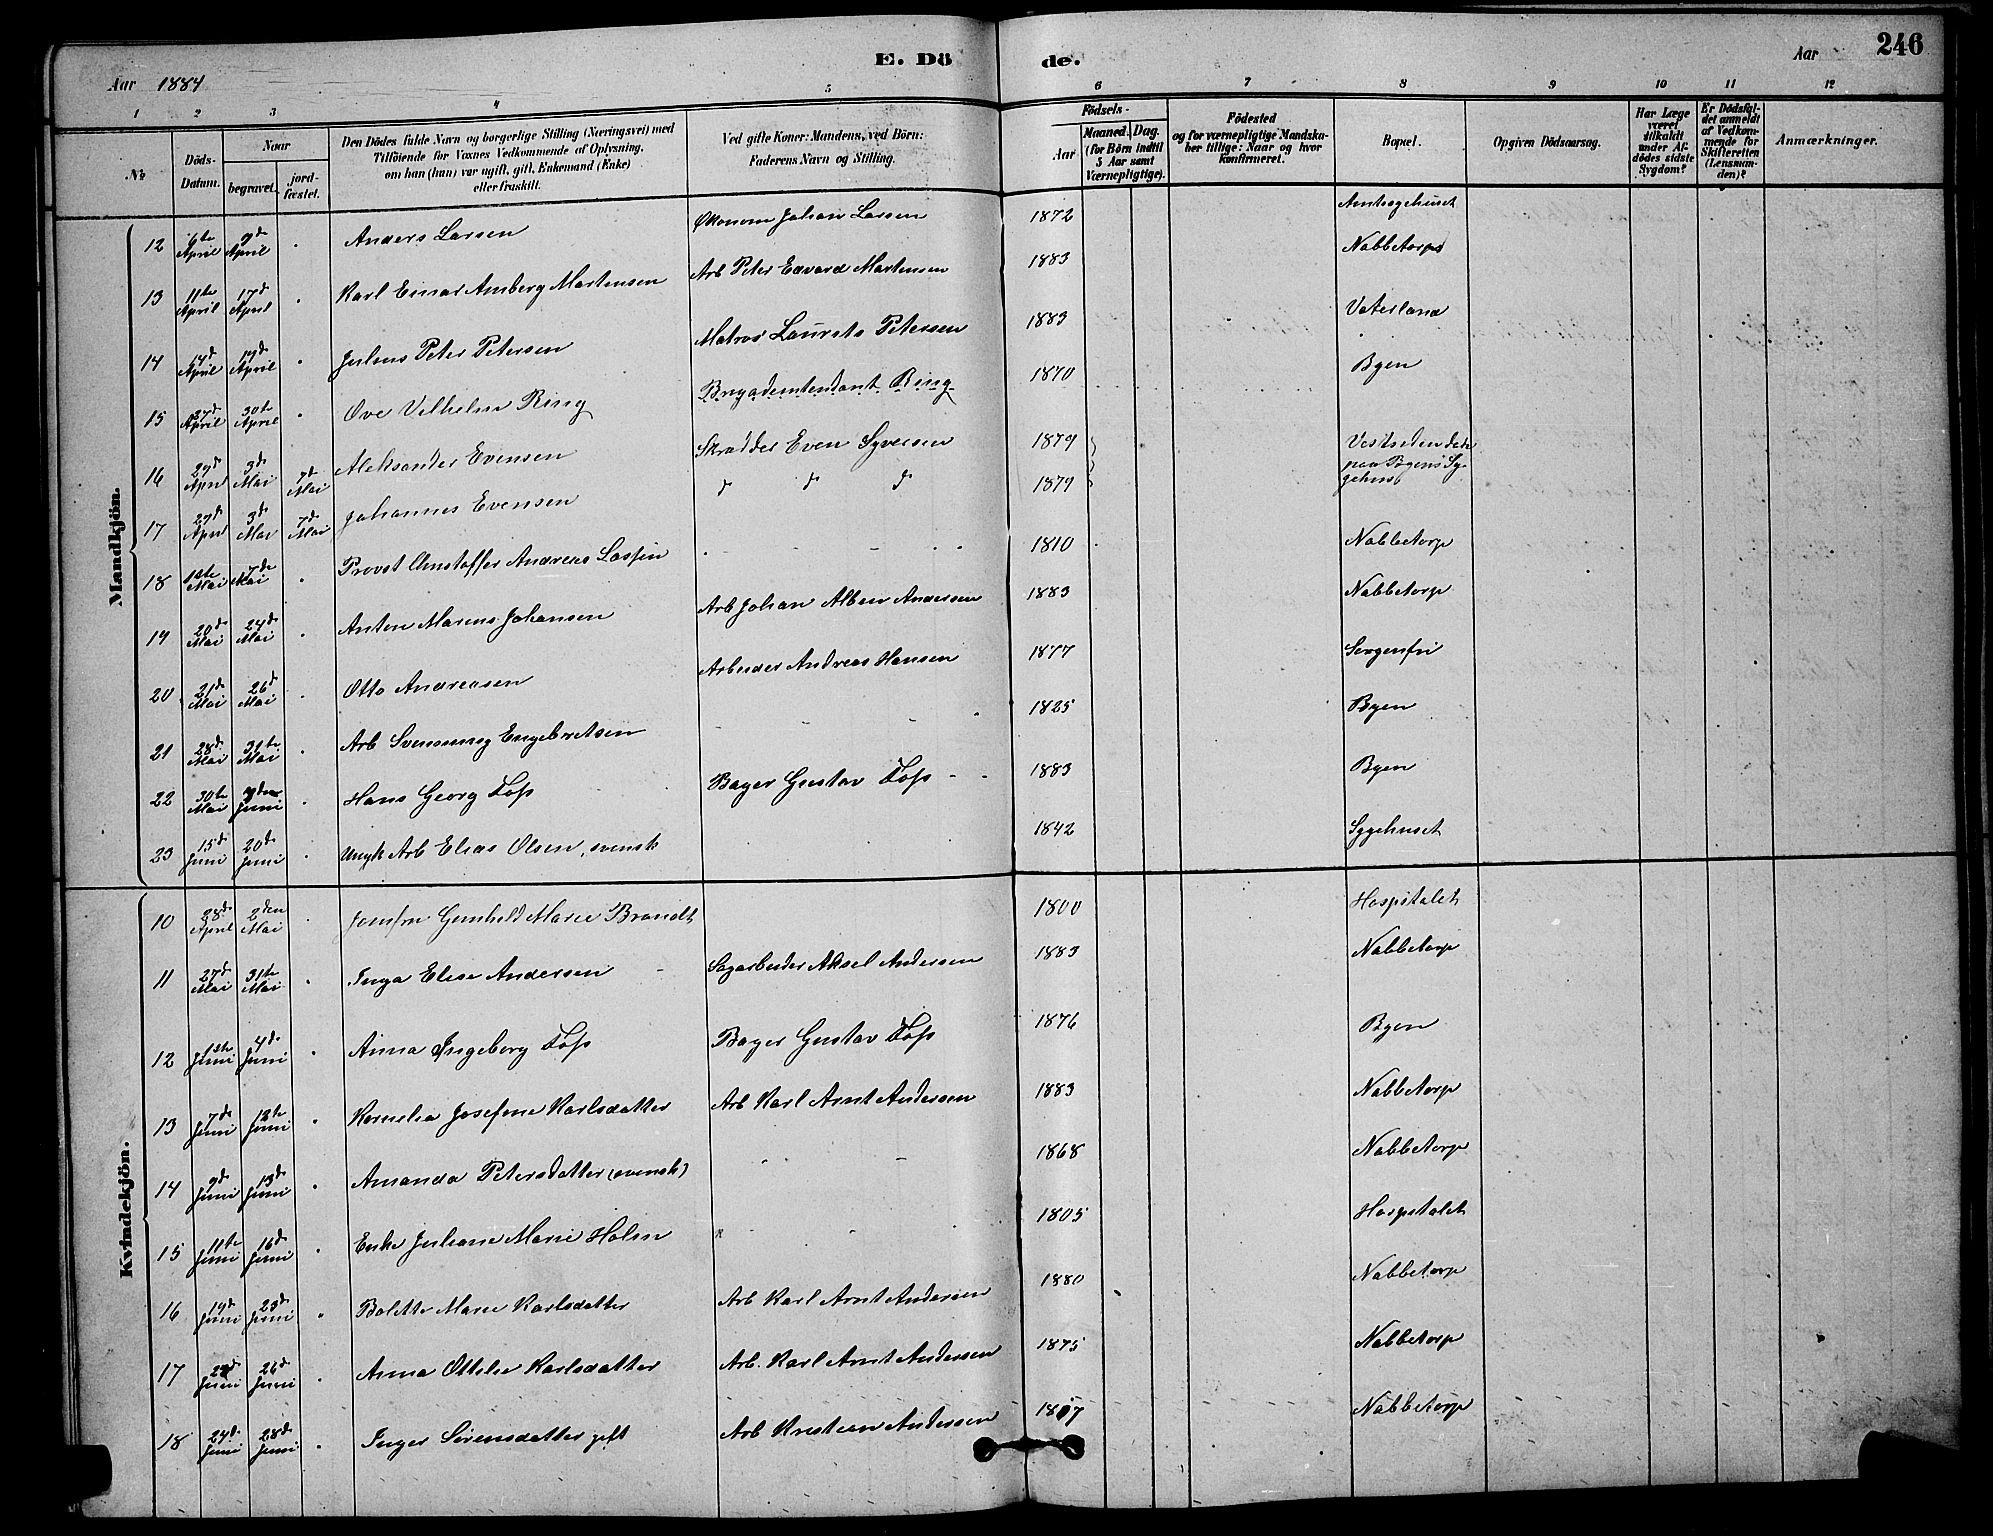 Aar 1884
E. Dö de.
Aar 246
1 2 3 4 5 6 7 8 9 10 11 12
No.
Döds-Datum.
Naar begravet. jord-fæstet.
Den Dödes fulde Navn og borgerlige Stilling (Næringsvei) med Tilföiende for Voxnes Vedkommende af Oplysning, om han (hun) var ugift, gift, Enkemand (Enke) eller fraskilt.
Ved gifte Koner: Mandens, ved Börn: Faderens Navn og Stilling.
Födsels-
Aar
Maaned. Dag.
(for Börn indtil 5 Aar samt Værnepligtige).
Födested og for værnepligtige Mandska-ber tillige: Naar og hvor Konfirmeret.
Bopæl.
Opgiven Dödsaarsag.
Har Læge været tilkaldt under Af-dödes sidste Sygdom?
Er Dödsfal-det anmeldt af Vedkom-mende for Skifteretten (Lensman-den)?
Anmærkninger.
Mandkjön.
12 6te April 9de April Anders Larsen Økonom Johan Larsen 1872 Amtsygehuset
13 11te April 17de April Karl Einar Amberg Martensen Arb Peter Edvard Martensen 1883 Nabbetorp
14 14de April 19de April Julius Peter Petersen Matros Laurits Petersen 1883 Vaterland
15 27de April 30te April Ove Vilhelm Ring Brigadeintendant Ring 1870 Byen
16 29de April 3de Mai 7de Mai Aleksander Evensen Skrædder Even Syversen 1879 Vestsiden døde paa Byens Sygehus
17 29de April 3de Mai 7de Mai Johannes Evensen d d d 1879
18 1ste Mai 7de Mai Provst Christoffer Andreas Lassen 1810 Nabbetorp
19 20de Mai 24de Mai Anton Marius Johansen Arb Johan Alben Andersen 1883 Nabbetorp
20 21de Mai 26de Mai Otto Andreasen Arbeider Andreas Hansen 1877 Sorgenfri
21 28de Mai 31te Mai Arb Svenning Engebretsen 1825 Byen
22 30te Mai Juni Hans Georg Bager Gustav 1883 Byen
23 15de Juni 20de Juni Ungk Arb Elias Olsen, svensk 1842 Sygehuset
Kvindekjön.
10 28de April 2den Mai Jomfru Gunhild Marie Brandt 1800 Hospitalet
11 27de Mai 31te Mai Inga Elise Andersen Sagarbeider Aksel Andersen 1883 Nabbetorp
12 1ste Juni 4de Juni Anna Ingeborg Bager Gustav 1876 Byen
13 7de Juni 13te Juni Kornelia Josefine Karlsdatter Arb Karl Arnt Andersen 1883 Nabbetorp
14 9de Juni 13de Juni Amanda Petersdatter (svensk) 1868 Nabbetorp
15 11te Juni 16de Juni Enke Juliane Marie Holm 1805 Hospitalet
16 19de Juni 23de Juni Bolette Marie Karlsdatter Arb Karl Arnt Andersen 1880 Nabbetorp
17 Juni 26de Juni Anna Ottilie Karlsdatter Arb. Karl Arnt Andersen 1875 Nabbetorp
18 24de Juni 28de Juni Inger Sørensdatter gift Arb Kristian Andersen 1807 Nabbetorp